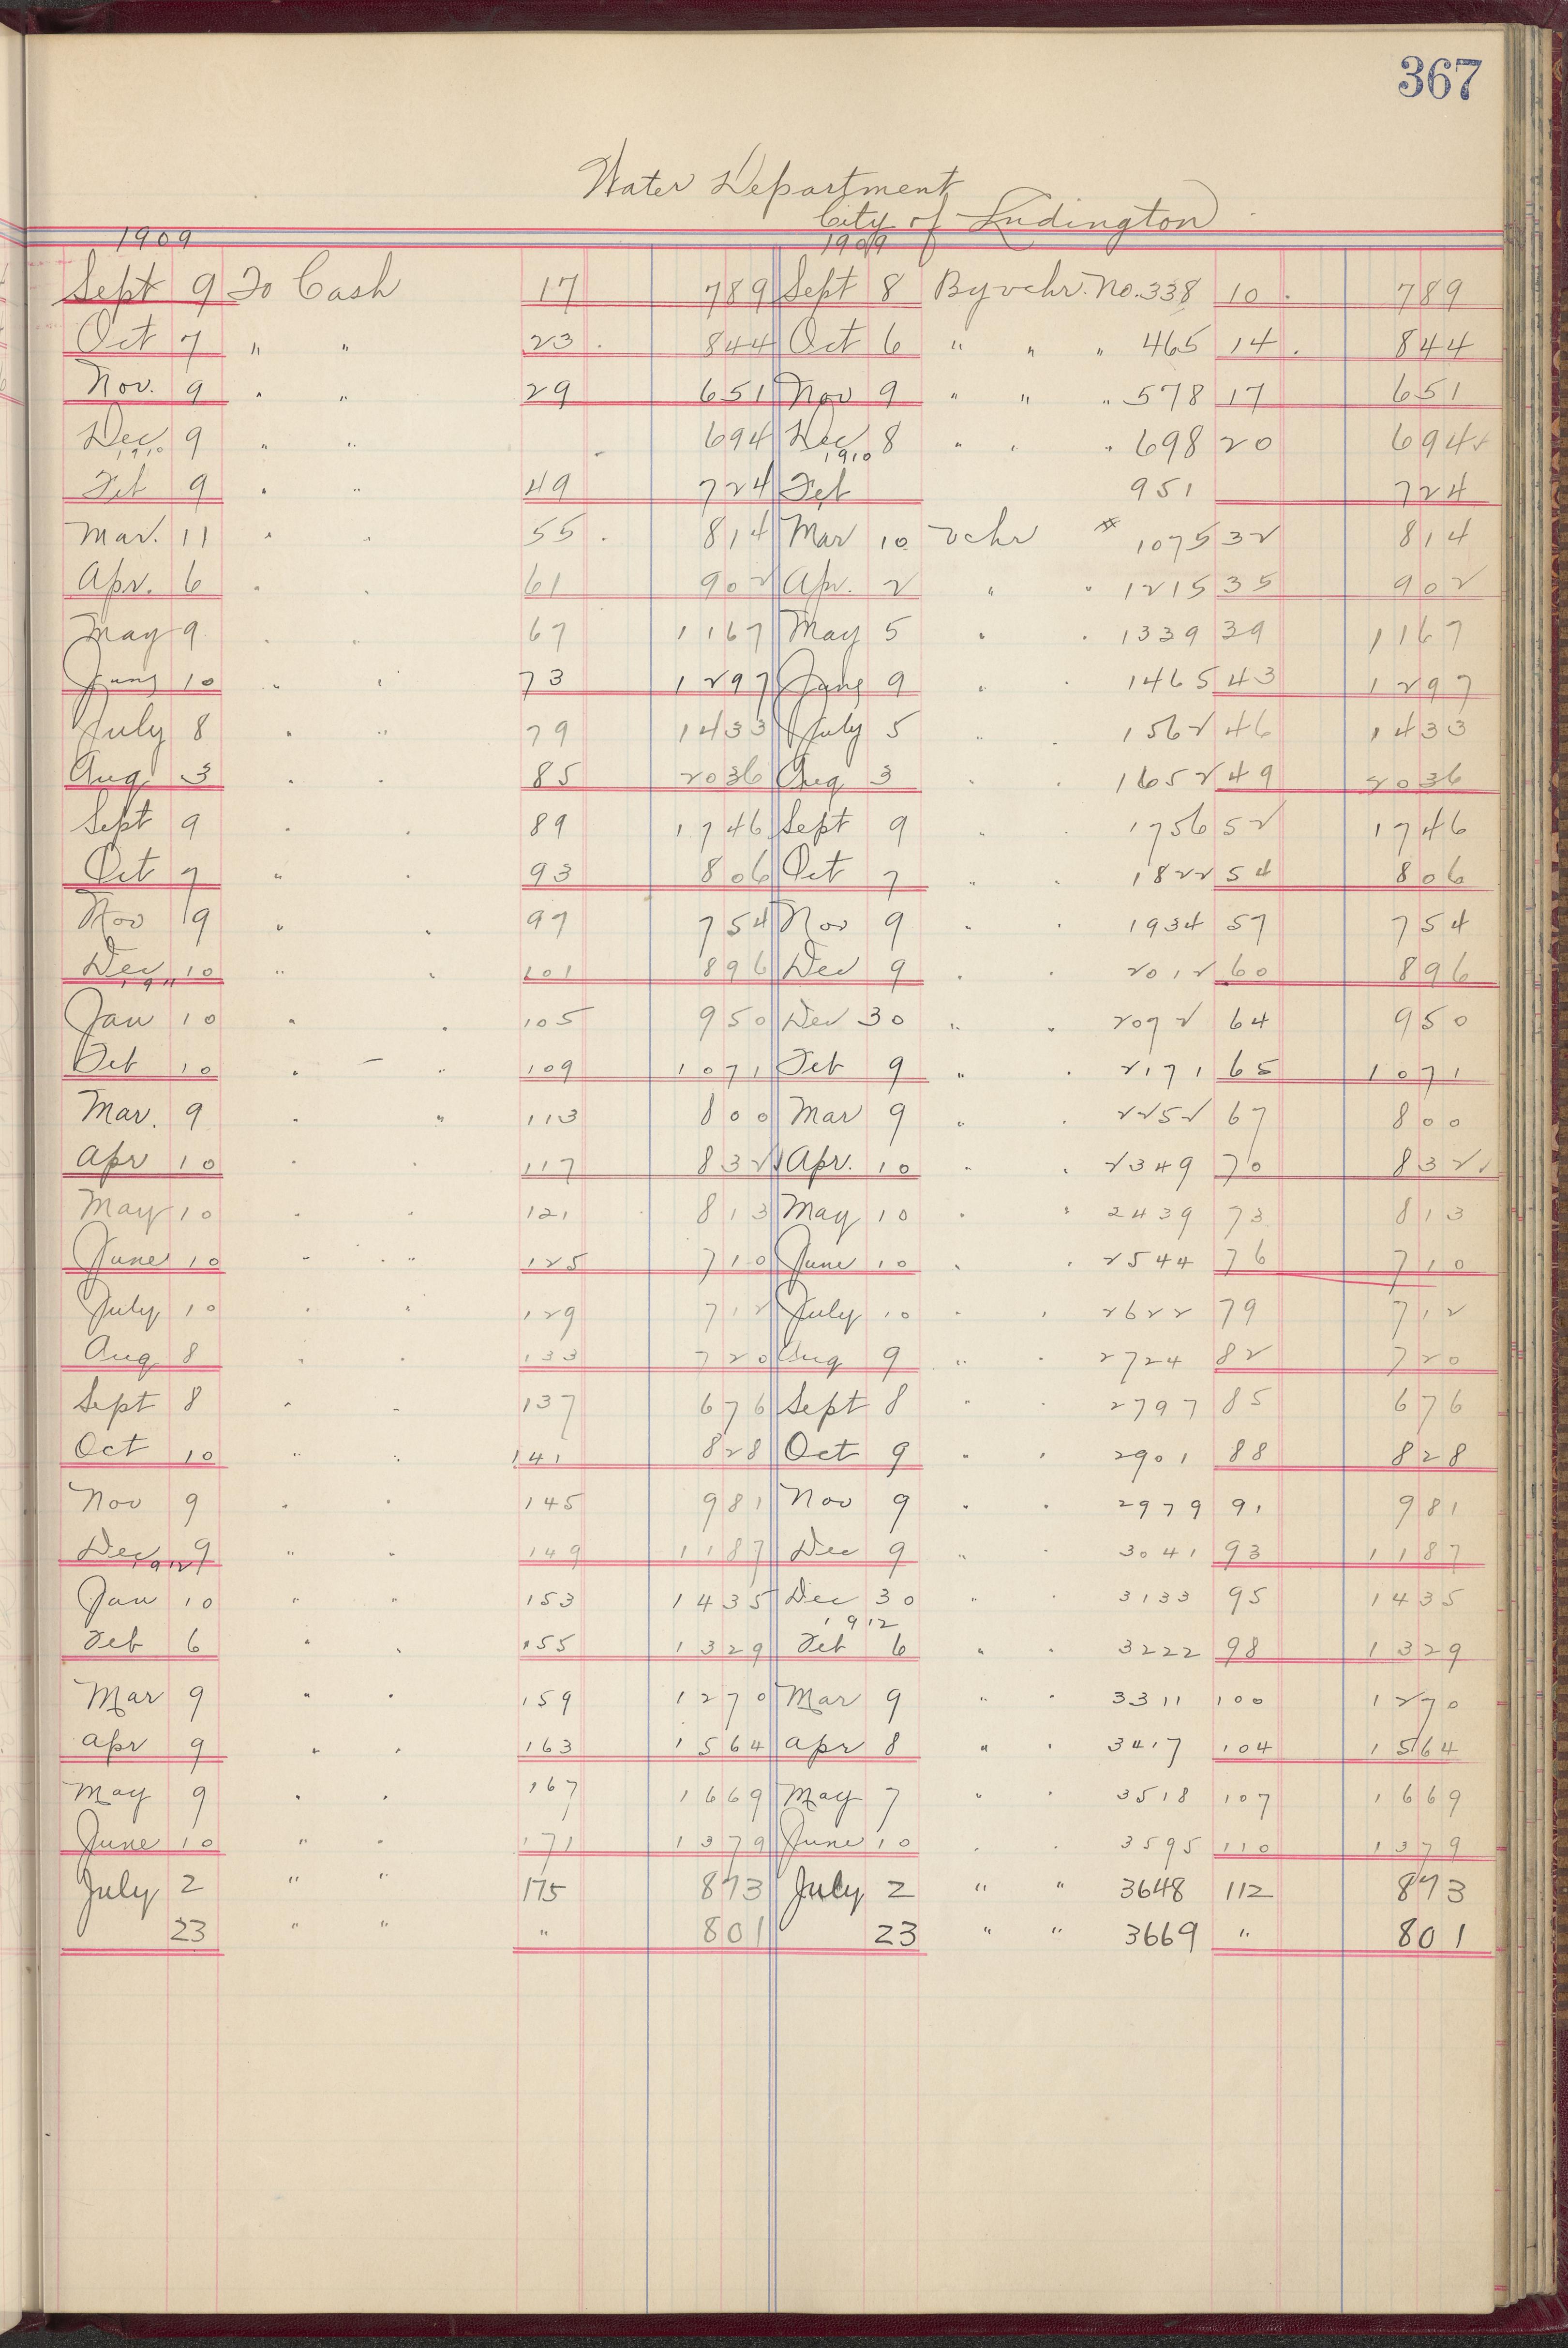 367
Water Department
City of Ludington
1909 1909
Sept 9 To Cash 17 789 Sept 8 By vchr. No. 338 10 . 789
Oct 7 " " 23 . 844 Oct 6 " " " 465 14 . 844
Nov. 9 " " 29 651 Nov 9 " " " 578 17 651
Dec 9 " " 694 Dec 8 " " " 698 20 694
1910 1910
Feb 9 " " 49 724 Feb 951 724
Mar. 11 " " 55 . 814 Mar 10 vchr # 1075 32 814
Apr. 6 " " 61 902 Apr. 2 " " 1215 35 902
May 9 " " 67 1167 May 5 " " 1339 39 1167
June 10 " " 73 1297 June 9 " " 1465 43 1297
July 8 " " 79 1433 July 5 " " 1562 46 1433
Aug 3 " " 85 2036 Aug 3 " " 1652 49 2036
Sept 9 " " 89 1746 Sept 9 " " 1756 52 1746
Oct 7 " " 93 806 Oct 7 " " 1822 54 806
Nov 9 " " 97 754 Nov 9 " " 1934 57 754
Dec 10 " " 101 896 Dec 9 " " 2012 60 896
1911
Jan 10 " " 105 950 Dec 30 " " 2072 64 950
Feb 10 " " 109 1071 Feb 9 " " 2171 65 1071
Mar. 9 " " 113 800 Mar 9 " " 2252 67 800
Apr 10 " " 117 832 Apr. 10 " " 2349 70 832
May 10 " " 121 813 May 10 " " 2439 73 813
June 10 " " 125 710 June 10 " " 2544 76 710
July 10 " " 129 712 July 10 " " 2622 79 712
Aug 8 " " 133 720 Aug 9 " " 2724 82 720
Sept 8 " " 137 676 Sept 8 " " 2797 85 676
Oct 10 " " 141 828 Oct 9 " " 2901 88 828
Nov 9 " " 145 981 Nov 9 " " 2979 91 981
Dec 9 " " 149 1187 Dec 9 " " 3041 93 1187
1912
Jan 10 " " 153 1435 Dec 30 " " 3133 95 1435
1912
Feb 6 " " 155 1329 Feb 6 " " 3222 98 1329
Mar 9 " " 159 1270 Mar 9 " " 3311 100 1270
Apr 9 " " 163 1564 Apr 8 " " 3417 104 1564
May 9 " " 167 1669 May 7 " " 3518 107 1669
June 10 " " 171 1379 June 10 " " 3595 110 1379
July 2 " " 175 873 July 2 " " 3648 112 873
23 " " " 801 23 " " 3669 " 801